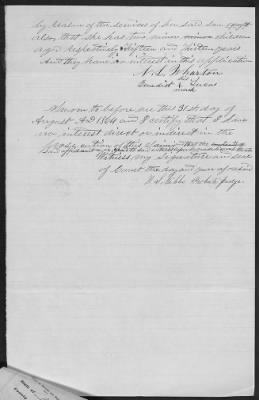 by reason of the services of her said son
also, that she has two minor children
aged respectively fifteen and sixteen years
And they have no interest in this application
N. L. Wharton
his
Benedict X Lucas
mark
Sworn to before me this 31st day of
August A.D 1864 and I certify that I have
no interest direct or indirect in the
prosecution of this claim
Witness my Signature and seal
of Court the day and year aforesaid
Probate Judge